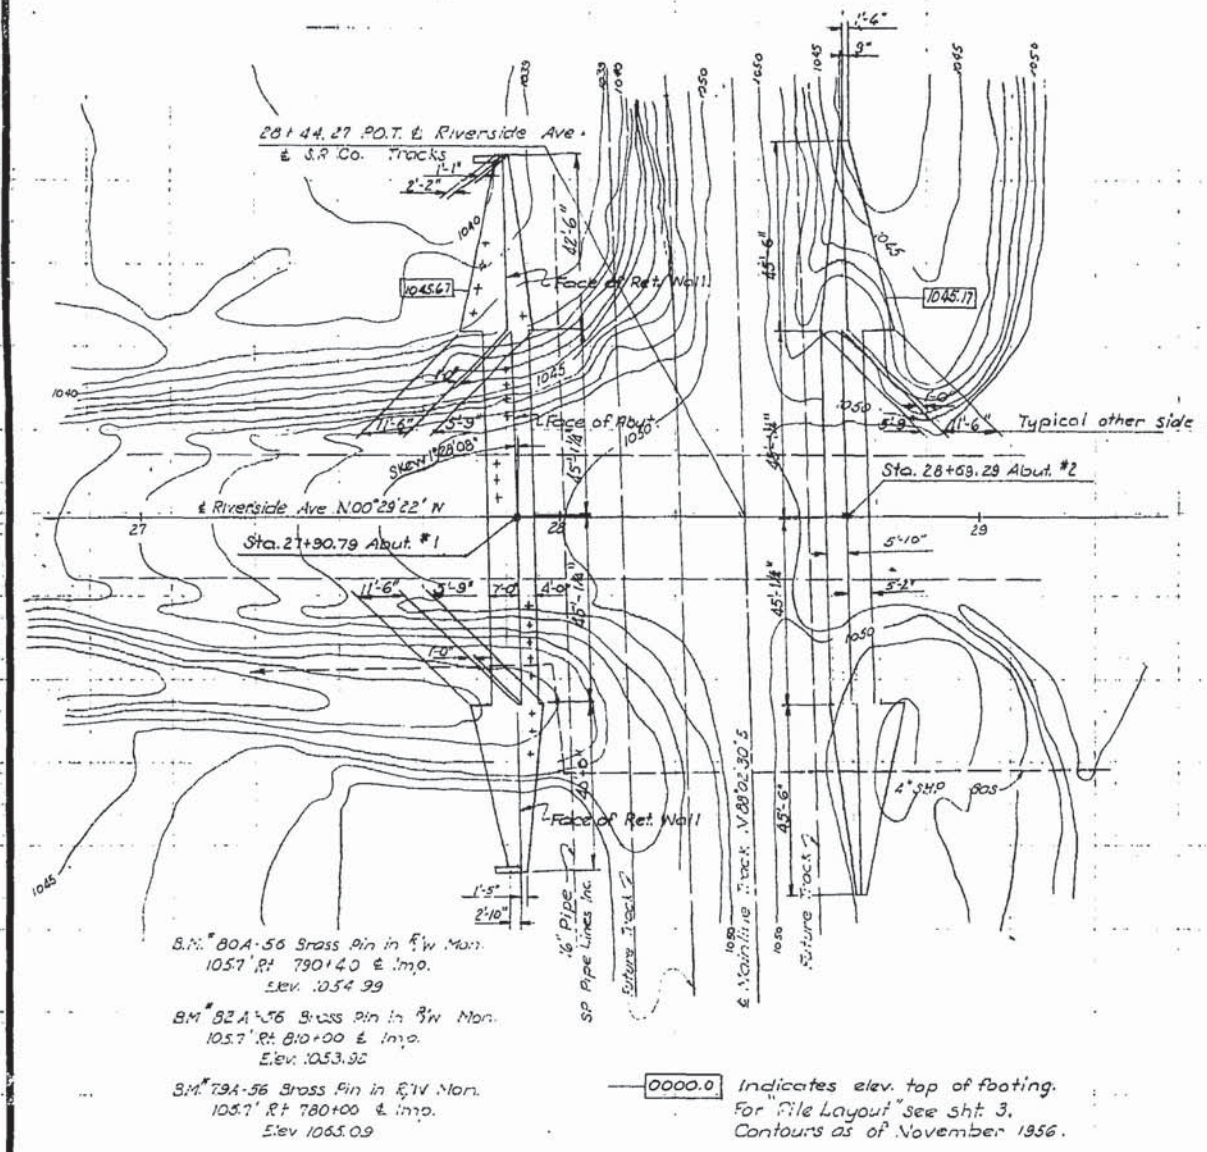 1'-4"
9"
1039
1039
1040
1050
1050
1045
1045
1050
28+44.27 P.O.T. ℄ Riverside Ave.
℄ S.P. Co. Tracks
1'-1"
2'-2"
42'-6"
45'-6"
1040
1045
Face of Ret. Wall.
1045.67
1045.17
1040
1'-0"
1045
1050
1'-0"
11'-6"
5'-9"
Face of Abut.
1050
5'-9"
11'-6"
Typical other side
Skew 1°28'08"
45'-1¼"
45'-1¼"
Sta. 28+69.29 Abut. #2
℄ Riverside Ave N00°29'22" W
27
28
29
Sta. 27+90.79 Abut. #1
5'-10"
11'-6"
5'-9"
7'-0"
4'-0"
45'-1¼"
45'-1¼"
5'-2"
1'-0"
1050
4" S.H.P. gas
45'-6"
Face of Ret. Wall
1045
1'-5"
2'-10"
16" Pipe
SP Pipe Lines Inc.
Future Track
℄ Mainline Track N88°02'30"S
1050
1050
Future Track
B.M. #80A-56 Brass Pin in R/W Mon.
105.7' Rt 790+40 ℄ Imp.
Elev. 1054.99
BM #82A-56 Brass Pin in R/W Mon.
105.7' Rt. 810+00 ℄ Imp.
B.M. #79A-56 Brass Pin in R/W Mon.
105.7' Rt 780+00 ℄ Imp.
Elev 1065.09
0000.0 Indicates elev. top of footing.
For "Pile Layout" see sht. 3.
Contours as of November 1956.